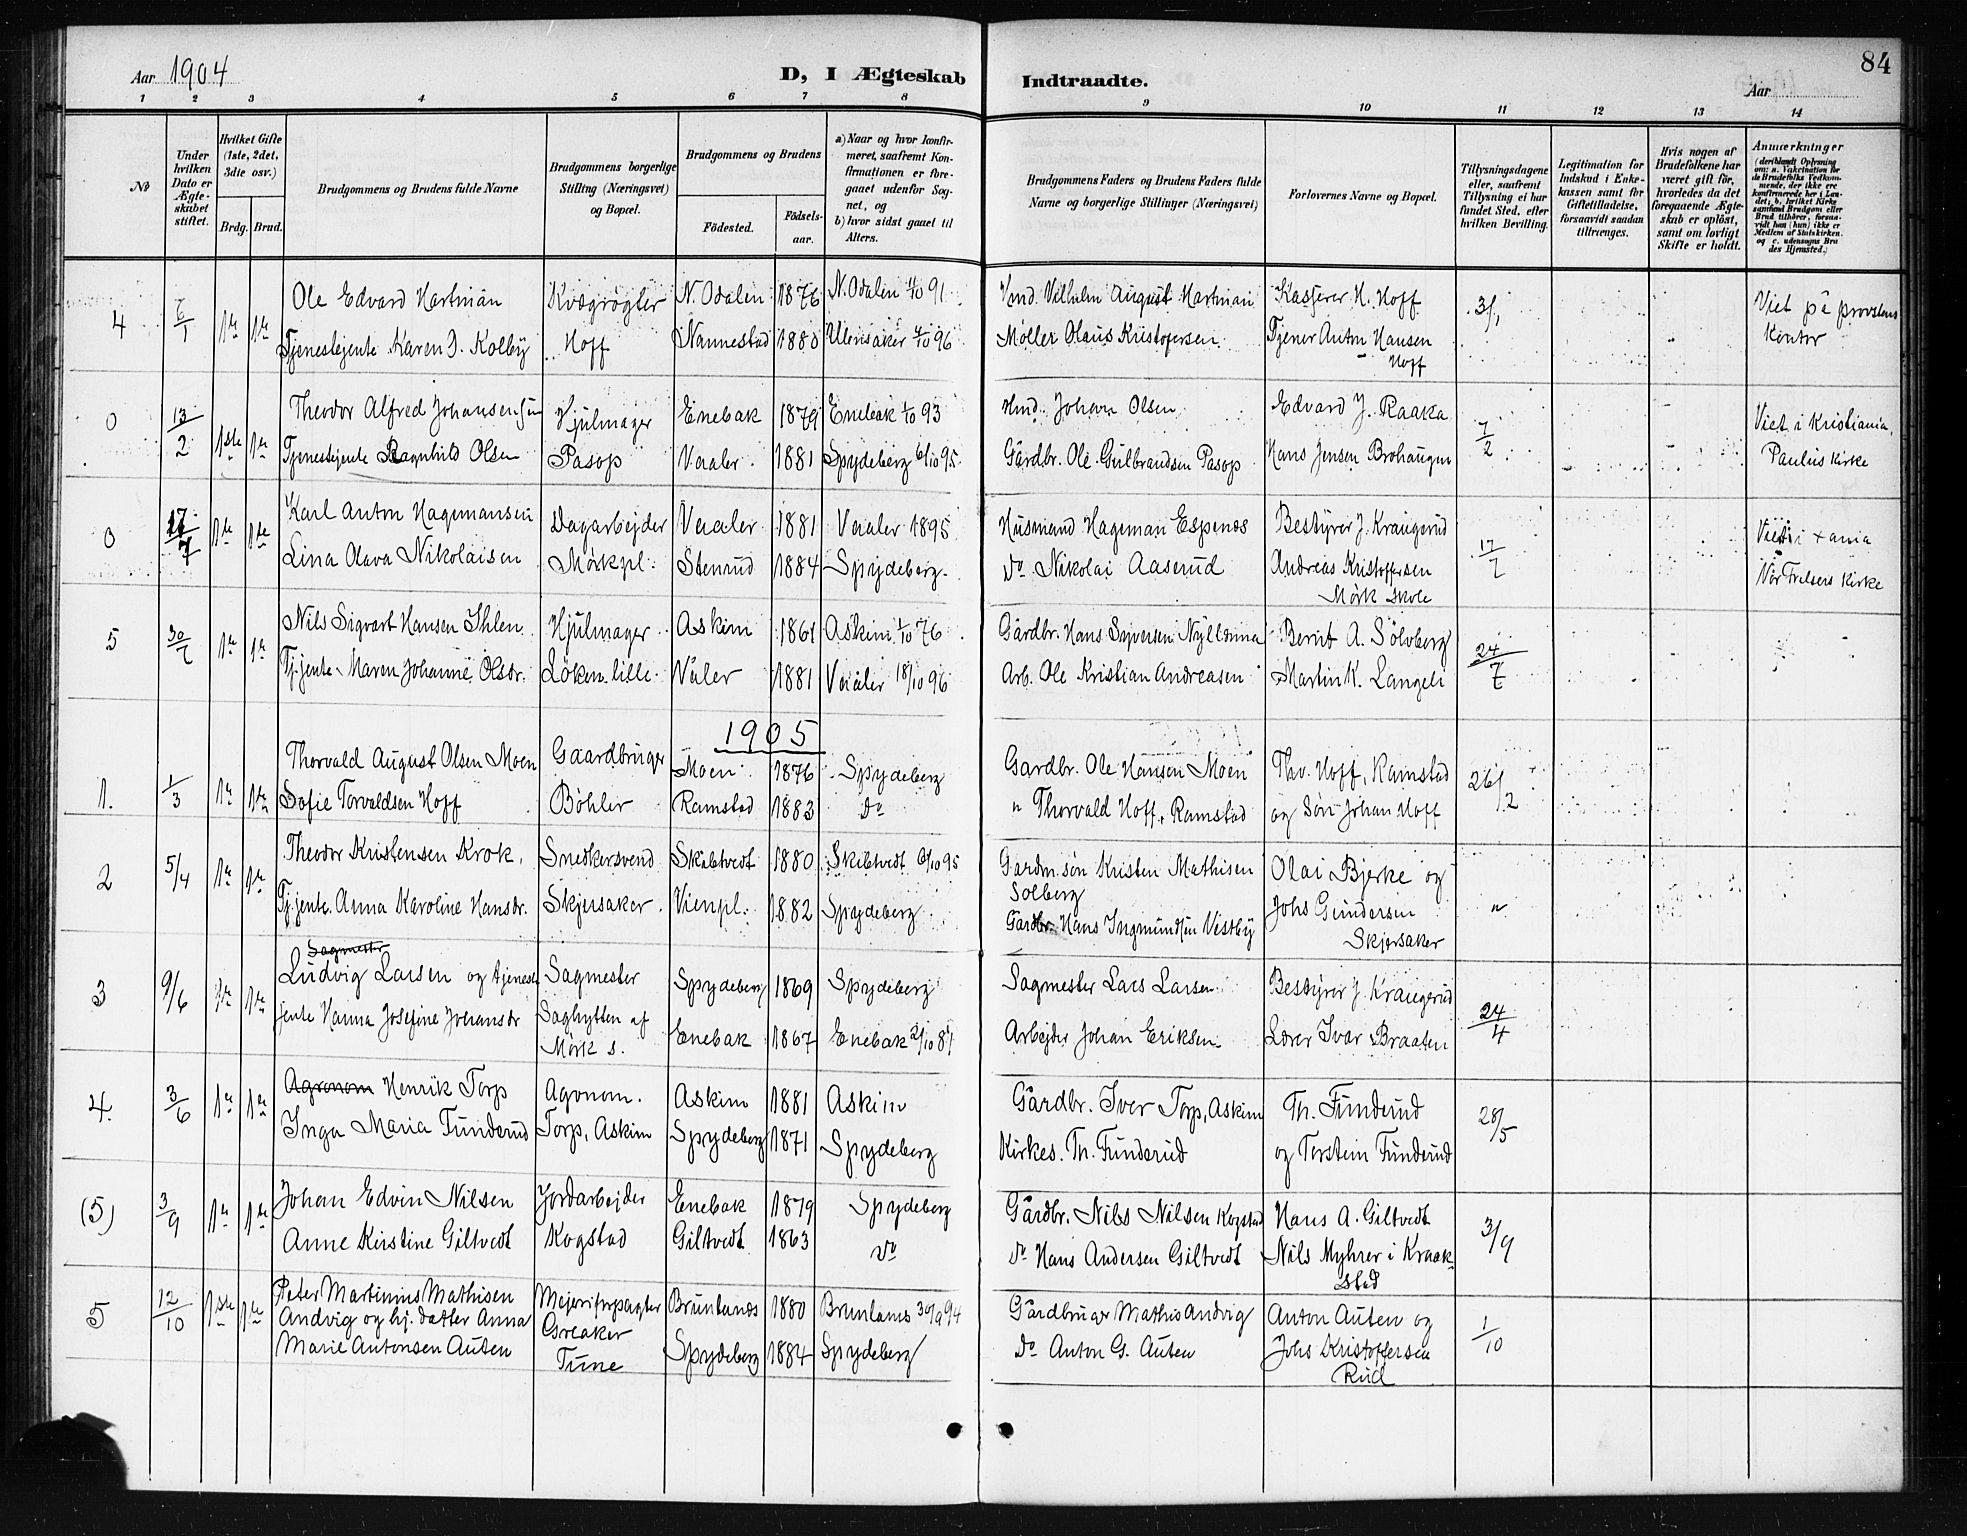 84
Aar 1904
D, I Ægteskab Indtraadte.
Aar
1 2 3 4 5 6 7 8 9 10 11 12 13 14
No
Under hvilken Dato er Ægteskabet stiftet.
Hvilket Gifte (1ste, 2det, 3dte osv.)
Brdg. Brud.
Brudgommens og Brudens fulde Navne
Brudgommens borgerlige Stilling (Næringsvei) og Bopæl.
Brudgommens og Brudens
Fødested. Fødsels-aar.
a) Naar og hvor konfirmeret, saafremt Konfirmationen er foregaaet udenfor Sognet, og
b) hvor sidst gaaet til Alters.
Brudgommens Faders og Brudens Faders fulde Navne og borgerlige Stillinger (Næringsvei)
Forlovernes Navne og Bopæl.
Tillysningsdagene eller, saafremt Tillysning ei har fundet Sted, efter hvilken Bevilling.
Legitimation for Indskud i Enkekassen samt for Giftetilladelse, forsaavidt saadan tiltrænges.
Hvis nogen af Brudefolkene har været gift før, hvorledes da det foregaaende Ægteskab er opløst, samt om lovligt Skifte er holdt.
Anmærkninger
(deriblandt Oplysning om: a. Vakcination for de Brudefolks Vedkommende, der ikke ere konfirmerede her i Landet; b. hvilket Kirkesamfund Brudgom eller Brud tilhører, forsaavidt han (hun) ikke er Medlem af Statskirken, og c. udensogns Brudes Hjemsted.)
4 1ste 1ste Ole Edvard Hartman Kvægrøgter N. Odalen 1876 N. Odalen 4/10 91 Hmd. Vilhelm August Hartman Kasserer H. Hoff 3/1 Viet på provstens
Tjenestejente Karen J. Kolby Hoff Nannestad 1880 Ullensaker 4/10 96 Møller Olaus Kristofersen Tjener Anton Hansen Kontor
Hoff
0 13/2 1ste 1ste Theodor Alfred Johansen Hjulmager Enebak 1879 Enebak 1/10 93 Hmd. Johan Olsen Edvard J. Raaka 7/2 Viet i Kristiania,
Tjenestejente Ragnhild Olsen Pasop Vaaler 1881 Spydeberg 6/10 95 Gårdbr. Ole Gulbrandsen Pasop Hans Jensen Brohaugen Paulus kirke
0 17/7 1ste 1ste Karl Anton Hagemansen Dagarbejder Vaaler 1881 Vaaler 1895 Husmand Hageman Espenæs Bestyrer J. Kraugerud 17/7 Viet i Xania
Lina Olava Nikolaisen Mørkpl. Stenrud 1884 Spydeberg Do Nikolai Aaserud Andreas Kristoffersen Vor Frelsers Kirke
Mørk Skole
5 30/7 1ste 1ste Nils Sigvart Hansen Ihlen Hjulmager Askim 1861 Askim 1/10 76 Gårdbr. Hans Syversen Bernt A. Sølvberg 24/7
Tj. jente Maren Johanne Olsdr. Løken lille Våler 1881 Vaaler 18/10 96 Arb. Ole Kristian Andreasen Martin K. Langeli
1905
1. 1/3 1ste 1ste Thorvald August Olsen Moen Gaardbruger Moen 1876 Spydeberg Gardbr. Ole Hansen Moen Thv. Hoff, Ramstad 26/2
Sofie Torvaldsen Hoff Bøhler Ramstad 1883 Do " Thorvald Hoff, Ramstad og Søn Johan Hoff
2 5/4 1ste 1ste Theodor Kristensen Krok. Snedkersvend Skibtvedt 1880 Skibtvedt 6/10 95 Gardm. søn Kristen Mathisen Olai Bjerke og "
Solberg
Tj. jente. Anna Karoline Hansdr. Skjersaker Vienpl. 1882 Spydeberg Gardbr. Hans Ingmundsen Vestby Johs Gundersen
Skjersaker
Sagmester
3 9/6 1ste 1ste Ludvig Larsen og tjeneste Sagmester Spydeberg 1869 Spydeberg Sagmester Lars Larsen Bestyrer J. Kraugerud 24/4
jente Hanna Josefine Johansdr Saghytten af Enebak 1867 Enebak 2/10 81 Arbejder Johan Eriksen Lærer Ivar Braaten
Mørk s.
4. 3/6 1ste 1ste Agronom Henrik Torp Agronom. Askim 1881 Askim Gårdbr. Iver Torp, Askim Th. Funderud 28/5
Inga Maria Funderud Torp, Askim Spydeberg 1871 Spydeberg Kirkes. Th. Funderud og Torstein Funderud
(5) 3/9 1ste 1ste Johan Edvin Nilsen Jordarbejder Enebak 1879 Spydeberg Gårdbr. Nils Nilsen Kogstad Hans A. Giltvedt 3/9
Anne Kirstine Giltvedt Kogstad Giltvedt 1863 Do Do Hans Andersen Giltvedt Nils Myhrer i Kraak-
stad
5 12/10 1ste 1ste Peter Martinius Mathisen Mejeriforpagter Brunlanæs 1880 Brunlanæs 30/9 94 Gårdbruger Mathis Andvig Anton Auten og 1/10
Andvig og hj. datter Anna Greaker
Marie Antonsen Auten Tune Spydeberg 1884 Spydeberg Do Anton G. Auten Johs Kristoffersen
Rud